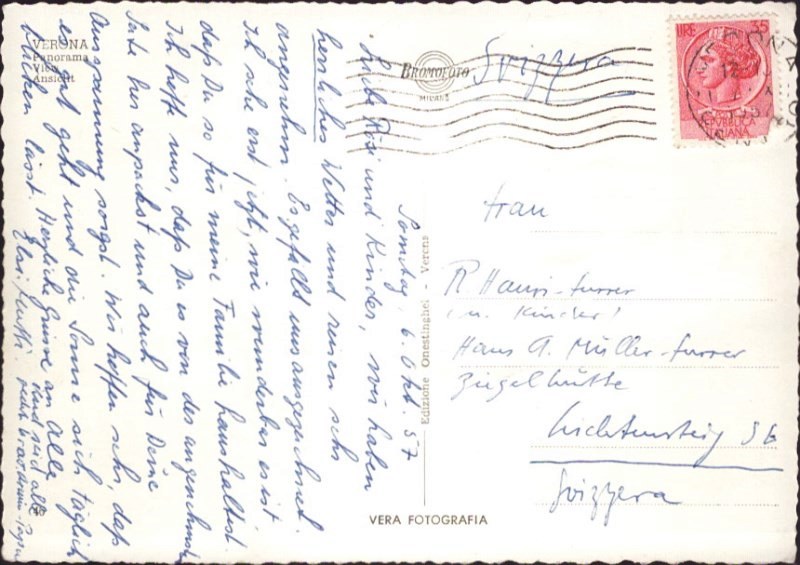 VERONA
Panorama
Vue
Ansicht
BROMOFOTO
MILANO
Svizzera
LIRE 35
REPVBBLICA
ITALIANA
VERONA
Edizione Onestinghel - Verona
VERA FOTOGRAFIA
Sonntag, 6. Okt. 57
Liebe Rösi und Kinder, wir haben
herrliches Wetter und reisen sehr
angenehm. Es gefällt uns ausgezeichnet.
Ich sehe erst jetzt, wie wunderbar es ist
daß Du so für meine Familie haushaltest.
Ich hoffe nur, daß Du es von der angenehmen
Seite her anpackst und auch für Deine
Ausspannung sorgst. Wir hoffen sehr, daß
es gut geht und die Sonne sich täglich
blicken lässt. Herzliche Grüsse an alle
und seid alle
recht brav
Frau
R. Hauri-Furrer
(u. Kinder)
Hans A. Müller-Furrer
Ziegelhütte
Lichtensteig SG
Svizzera